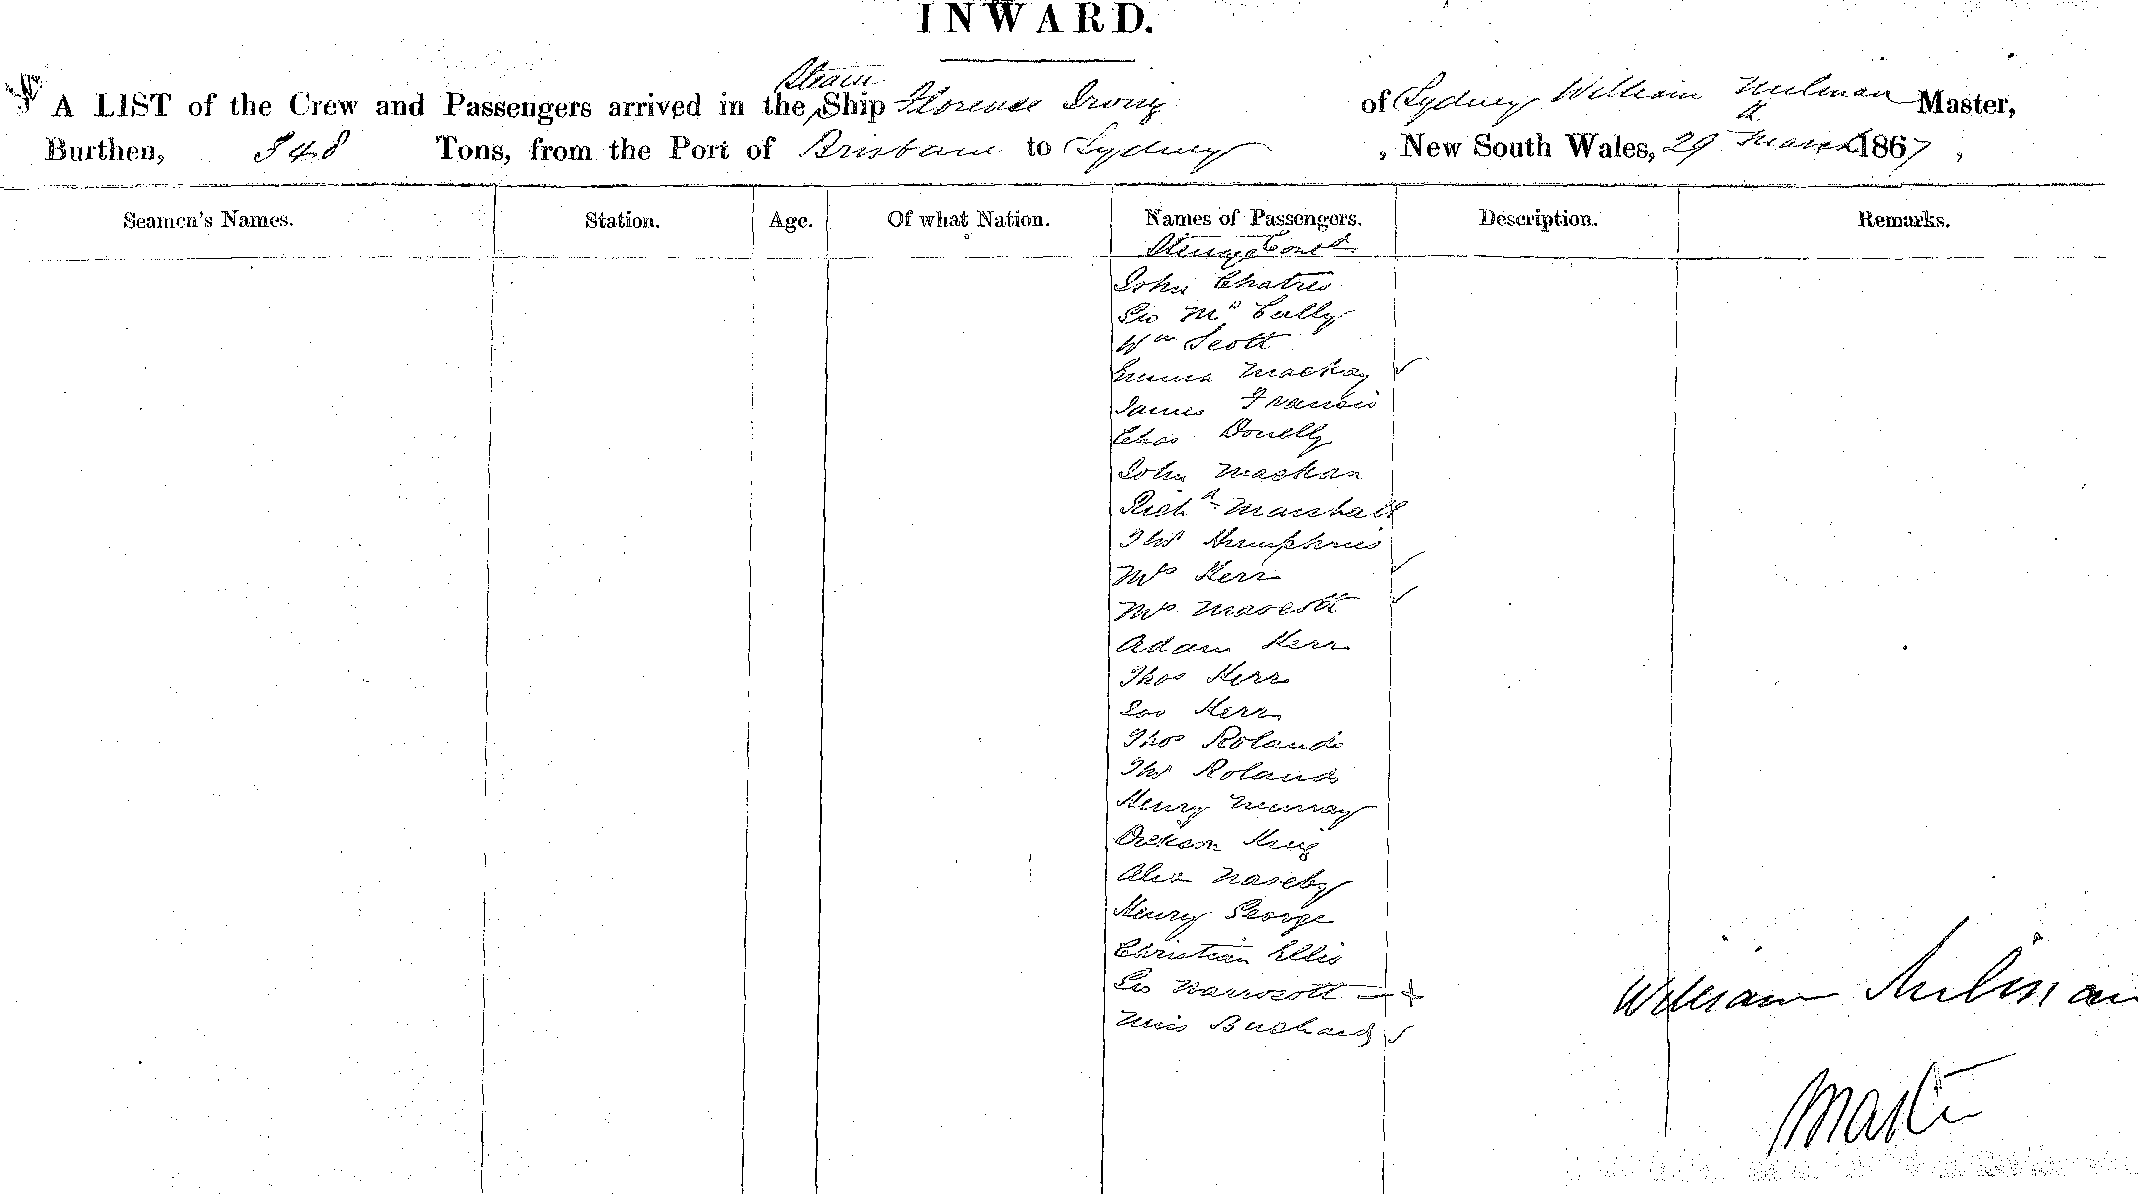 INWARD.
Steam
A LIST of the Crew and Passengers arrived in the Ship Florence Irving of Sydney William Hulman Master,
Burthen, 348 Tons, from the Port of Brisbane to Sydney, New South Wales, 29 March 1867,
Seamen's Names. Station. Age. Of what Nation. Names of Passengers. Description. Remarks.
Steerage Cont d
John Chatres
Geo Mc Cally
Wm Scott
Emma Mackay ✓
James Francis
Chas Donelly
John
Richd Marshall
Thos Humphries
Mrs Kerr ✓
Mrs ✓
Adam Kerr
Thos Kerr
Kerr
Thos Rolands
Thos Rolands
Henry Murray
King
Naseby
Henry George
Christian Ellis
Geo
Miss ✓
William
Master